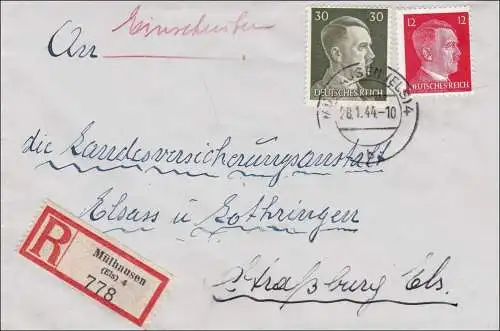 Einschreiben
An
30 30
DEUTSCHES REICH
12 12
DEUTSCHES REICH
MÜLHAUSEN (ELS) 4
28.1.44-10
die Landesversicherungsanstalt
Elsass u Lothringen
Straßburg Els.
R
Mülhausen
(Els) 4
778